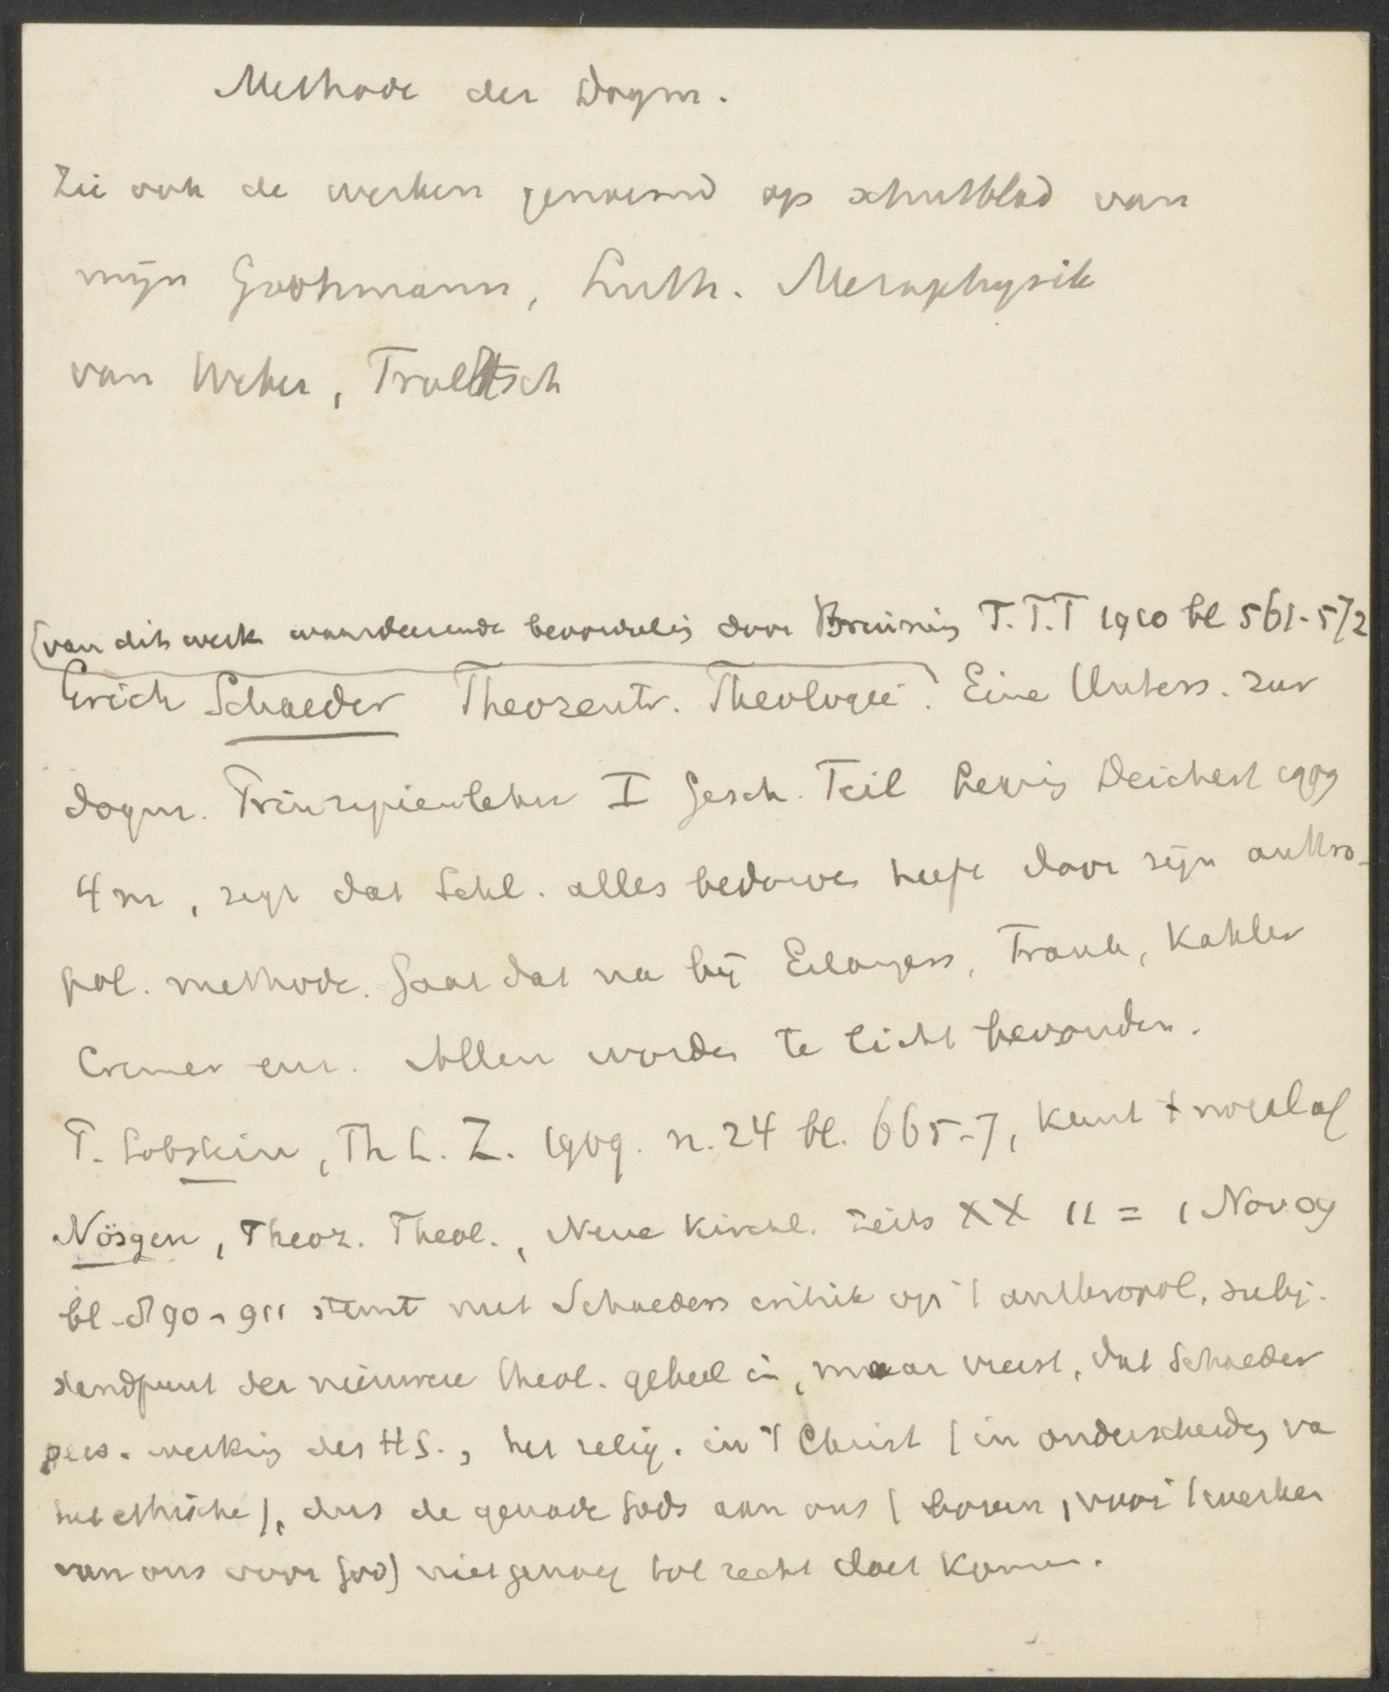 Methode der Dogm.
Zie ook de werken genoemd op schutblad van
mijn Grohmann, Luth. Metaphysik
van Weber, Troeltsch
(van dit werk waardeerende beoordeling door Bruining T.T.T 1910 bl 561-572
Erich Schaeder Theozentr. Theologie). Eine Unters. zur
dogm. Prinzipienlehre I Gesch. Teil Leipzig Deichert 1909
4 m, zegt dat Schl. alles bedorven heeft door zijn anthro-
pol. methode. Gaat dat na bij Erlangers, Frank, Kähler
Cremer enz. Allen worden te licht bevonden.
T. Lobstein, Th L. Z. 1909. n. 24 bl. 665-7, keurt 't nogal af
Nösgen, Theoz. Theol., Neue Kirchl. Zeits XX 11 = 1 Nov. 09
bl. 890-911 stemt met Schaeders critiek op 't anthropol. subj.
standpunt der nieuwere theol. geheel in, maar vreest, dat Schaeder
pers. werking des H G., het relig. in 't Christ (in onderscheiding va
het ethische), dus de genade Gods aan ons (boven, voor 't werken
van ons voor God) niet genoeg tot recht doet komen.